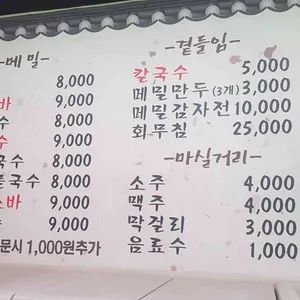 -메 밀-
8,000
바 9,000
수 8,000
수 9,000
국수 8,000
국수 8,000
소바 9,000
수 9,000
문시 1,000원추가
-곁들임-
칼국수 5,000
메밀만두(3개) 3,000
메밀감자전 10,000
회무침 25,000
-마실거리-
소주 4,000
맥주 4,000
막걸리 3,000
음료수 1,000